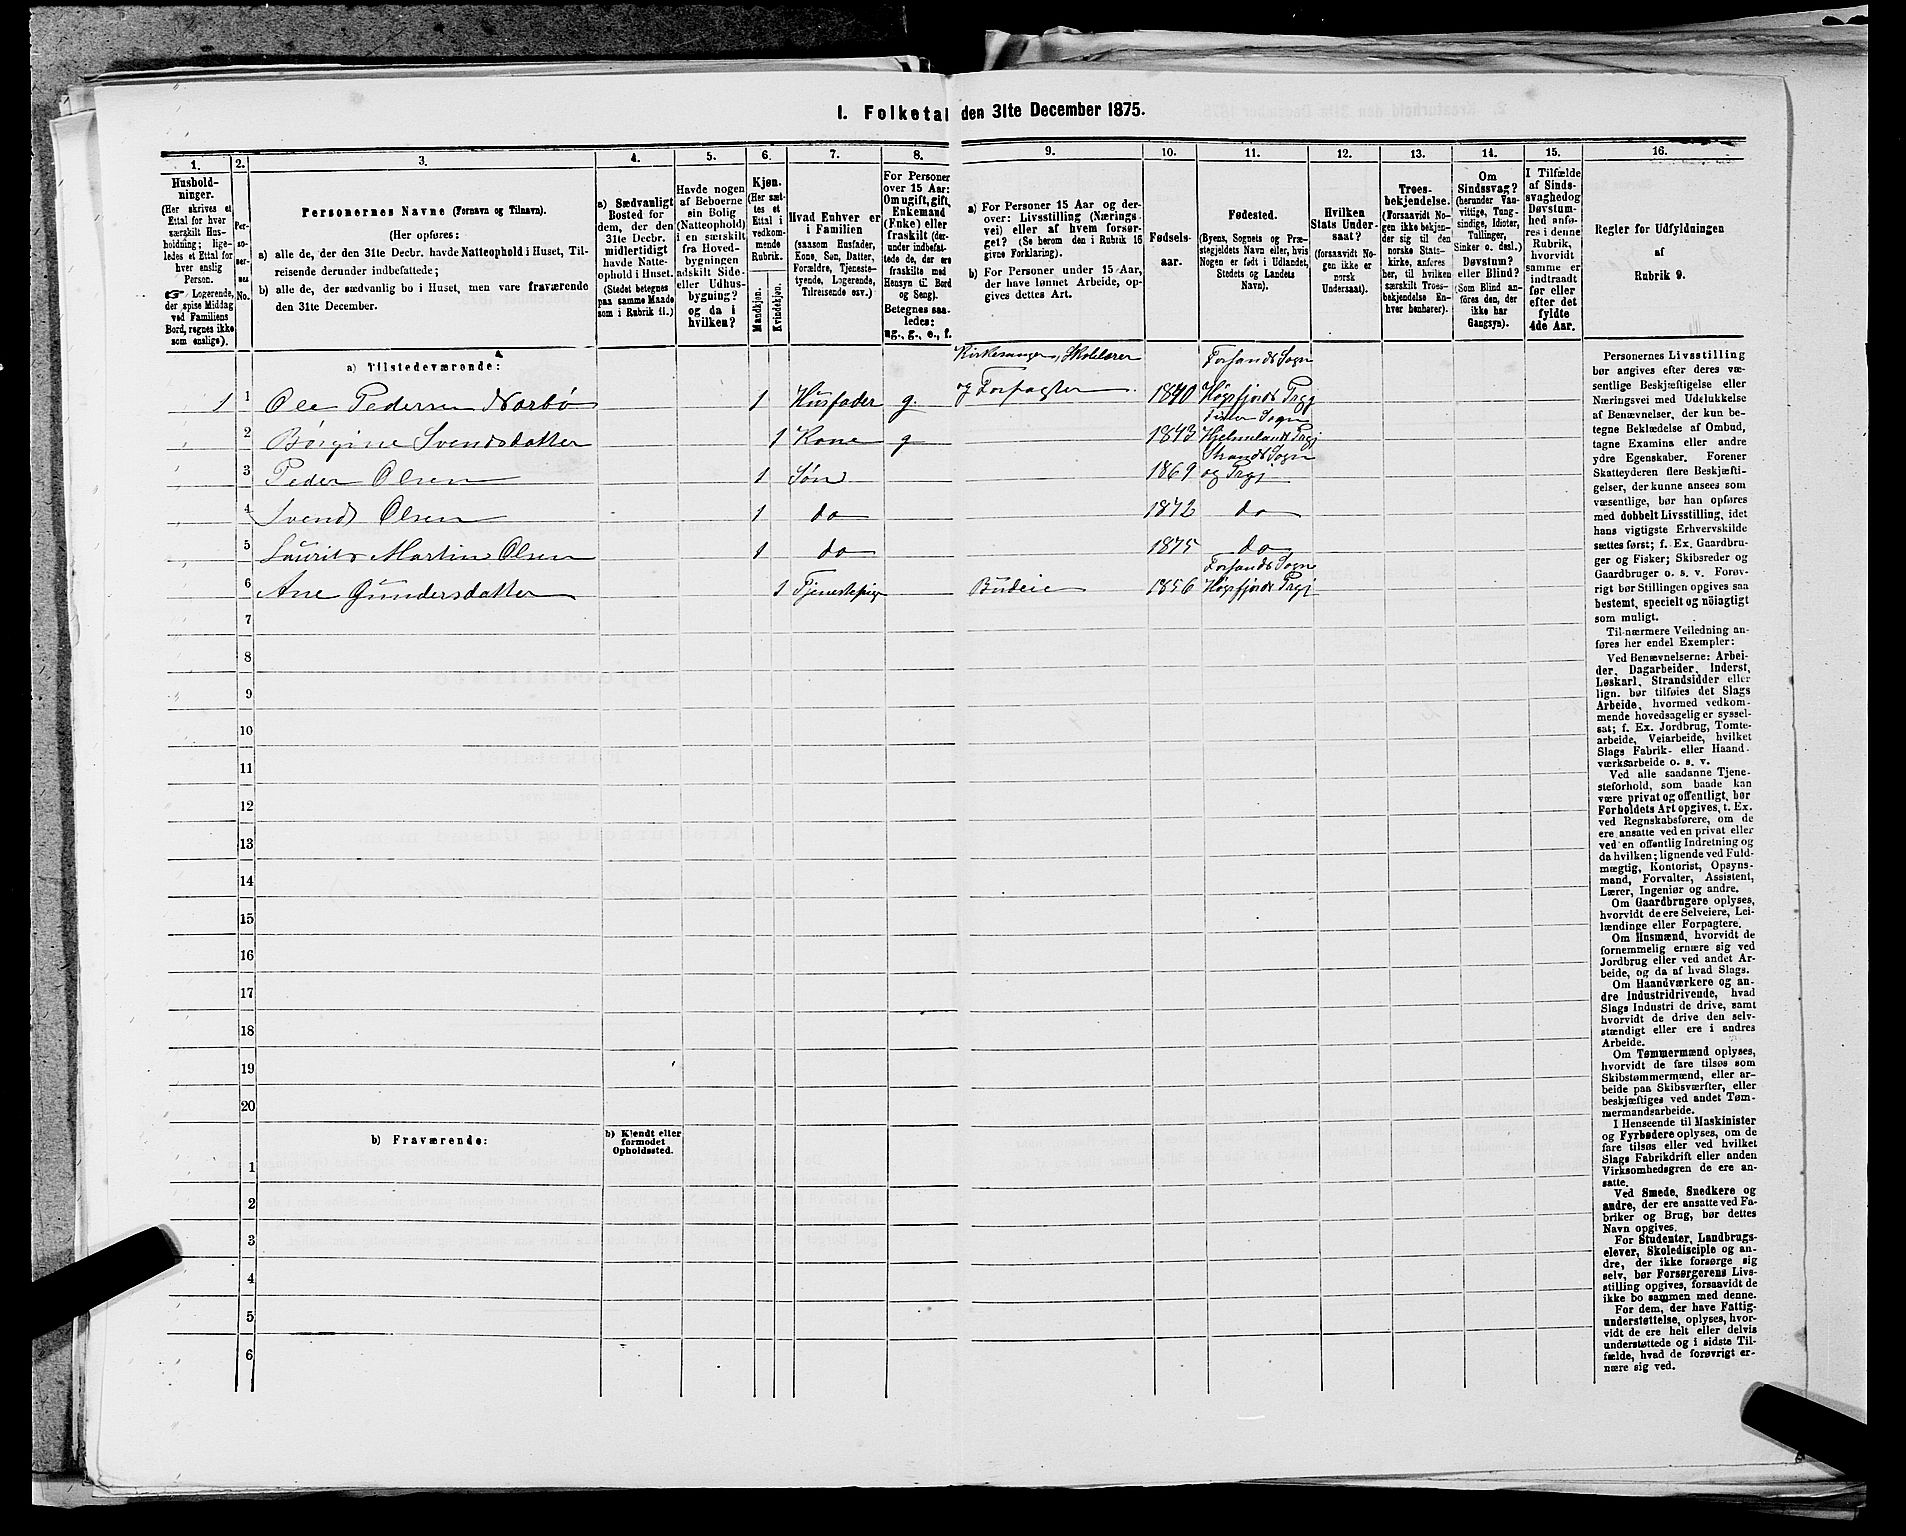 I. Folketal den 31te December 1875.
1. 2. 3. 4. 5. 6. 7. 8. 9. 10. 11. 12. 13. 14. 15. 16.
Hushold-
ninger.
(Her skrives et
Ettal for hver
særskilt Hus-
holdning; lige-
ledes et Ettal for
hver enslig
Person.
☞ Logerende,
der spise Middag
ved Familiens
Bord, regnes ikke
som enslige).
Per-
so-
ner-
nes
No.
Personernes Navne (Fornavn og Tilnavn).
(Her opføres:
a) alle de, der den 31te Decbr. havde Natteophold i Huset, Til-
reisende derunder indbefattede;
b) alle de, der sædvanlig bo i Huset, men vare fraværende
den 31te December.
a) Sædvanligt
Bosted for
dem, der den
31te Decbr.
midlertidigt
havde Natte-
ophold i Huset.
(Stedet betegnes
paa samme Maade
som i Rubrik 11.)
Havde nogen
af Beboerne
sin Bolig
(Natteophold)
i en særskilt
fra Hoved-
bygningen
adskilt Side-
eller Udhus-
bygning?
og da i
hvilken?
Kjøn.
(Her sæt-
tes et
Ettal i
vedkom-
mende
Rubrik.
Mandkjøn.
Kvindekjøn.
Hvad Enhver er
i Familien
(saasom Husfader,
Kone, Søn, Datter,
Forældre, Tjeneste-
tyende, Logerende,
Tilreisende osv.)
For Personer
over 15 Aar:
Om ugift, gift,
Enkemand
(Enke) eller
fraskilt (der-
under indbefat-
tede de, der ere
fraskilte med
Hensyn til Bord
og Seng).
Betegnes saa-
ledes:
ug., g., e., f.
a) For Personer 15 Aar og der-
over: Livsstilling (Nærings-
vei) eller af hvem forsør-
get? (Se herom den i Rubrik 16
givne Forklaring).
b) For Personer under 15 Aar,
der have lønnet Arbeide, op-
gives dettes Art.
Fødsels-
aar.
Fødested.
(Byens, Sognets og Præ-
stegjeldets Navn eller, hvis
Nogen er født i Udlandet,
Stedets og Landets
Navn).
Hvilken
Stats Under-
saat?
(forsaavidt No-
gen ikke er
norsk
Undersaat).
Troes-
bekjendelse.
(Forsaavidt No-
gen ikke bekjen-
der sig til den
norske Stats-
kirke, anføres
her, til hvilken
særskilt Troes-
bekjendelse En-
hver henhører).
Om
Sindssvag?
(herunder Van-
vittige, Tung-
sindige, Idioter,
Tullinger,
Sinker o. desl.)
Døvstum?
eller Blind?
(Som Blind an-
føres den, der
ikke har
Gangsyn).
I Tilfælde
af Sinds-
svaghedog
Døvstum-
hed anfø-
res i denne
Rubrik,
hvorvidt
samme er
indtraadt
før eller
efter det
fyldte
4de Aar.
Regler for Udfyldningen
af
Rubrik 9.
a) Tilstedeværende:
Kirkesanger, Skolelærer Forsands Sogn
1 1 Ole Pedersen Norbø 1 Husfader g. og Forpagter. 1840 Høgsfjords Prgj
Fister Sogn
2 Børgine Svendsdatter 1 Kone g 1843 Hjelmelands Prgj
Strands Sogn
3 Peder Olsen 1 Søn 1869 og Prgj
4 Svend Olsen 1 do 1872 do
5 Laurits Martin Olsen 1 do 1875 do
Forsands Sogn
6 Ane Gundersdatter 1 Tjenestepige Budeie 1856 Høgsfjords Prgj
7
8
9
10
11
12
13
14
15
16
17
18
19
20
b) Fraværende:
b) Kjendt eller
formodet
Opholdssted.
1
2
3
4
5
6
Personernes Livsstilling
bør angives efter deres væ-
sentlige Beskjæftigelse eller
Næringsvei med Udelukkelse
af Benævnelser, der kun be-
tegne Beklædelse af Ombud,
tagne Examina eller andre
ydre Egenskaber. Forener
Skatteyderen flere Beskjæfti-
gelser, der kunne ansees som
væsentlige, bør han opføres
med dobbelt Livsstilling, idet
hans vigtigste Erhvervskilde
sættes først; f. Ex. Gaardbru-
ger og Fisker; Skibsreder og
Gaardbruger o. s. v. Forøv-
rigt bør Stillingen opgives saa
bestemt, specielt og nöiagtigt
som muligt.
Til nærmere Veiledning an-
føres her endel Exempler:
Ved Benævnelserne: Arbei-
der, Dagarbeider, Inderst,
Løskarl, Strandsidder eller
lign. bør tilføies det Slags
Arbeide, hvormed vedkom-
mende hovedsagelig er syssel-
sat; f. Ex. Jordbrug, Tomte-
arbeide, Veiarbeide, hvilket
Slags Fabrik- eller Haand-
værksarbeide o. s. v.
Ved alle saadanne Tjene-
steforhold, som baade kan
være privat og offentligt, bør
Forholdets Art opgives, t. Ex.
ved Regnskabsførere, om de
ere ansatte ved en privat eller
ved en offentlig Indretning og
da hvilken; lignende ved Fuld-
mægtig, Kontorist, Opsyns-
mand, Forvalter, Assistent,
Lærer, Ingeniør og andre.
Om Gaardbrugere oplyses,
hvorvidt de ere Selveiere, Lei-
lændinge eller Forpagtere.
Om Husmænd, hvorvidt de
fornemmelig ernære sig ved
Jordbrug eller ved andet Ar-
beide, og da af hvad Slags.
Om Haandværkere og an-
dre Industridrivende, hvad
Slags Industri de drive, samt
hvorvidt de drive den selv-
stændigt eller ere i andres
Arbeide.
Om Tømmermænd oplyses,
hvorvidt de fare tilsøs som
Skibstømmermænd, eller ar-
beide paa Skibsværfter, eller
beskjæftiges ved andet Tøm-
mermandsarbeide.
I Henseende til Maskinister
og Fyrbødere oplyses, om de
fare tilsøs eller ved hvilket
Slags Fabrikdrift eller anden
Virksomhedsgren de ere an-
satte.
Ved Smede, Snedkere og
andre, der ere ansatte ved Fa-
briker og Brug, bør dettes
Navn opgives.
For Studenter, Landbrugs-
elever, Skoledisciple og an-
dre, der ikke forsørge sig
selv, bør Forsørgerens Livs-
stilling opgives, forsaavidt de
ikke bo sammen med denne.
For dem, der have Fattig-
understøttelse, oplyses, hvor-
vidt de ere helt eller delvis
understøttede og i sidste Til-
fælde, hvad de forøvrigt er-
nære sig ved.